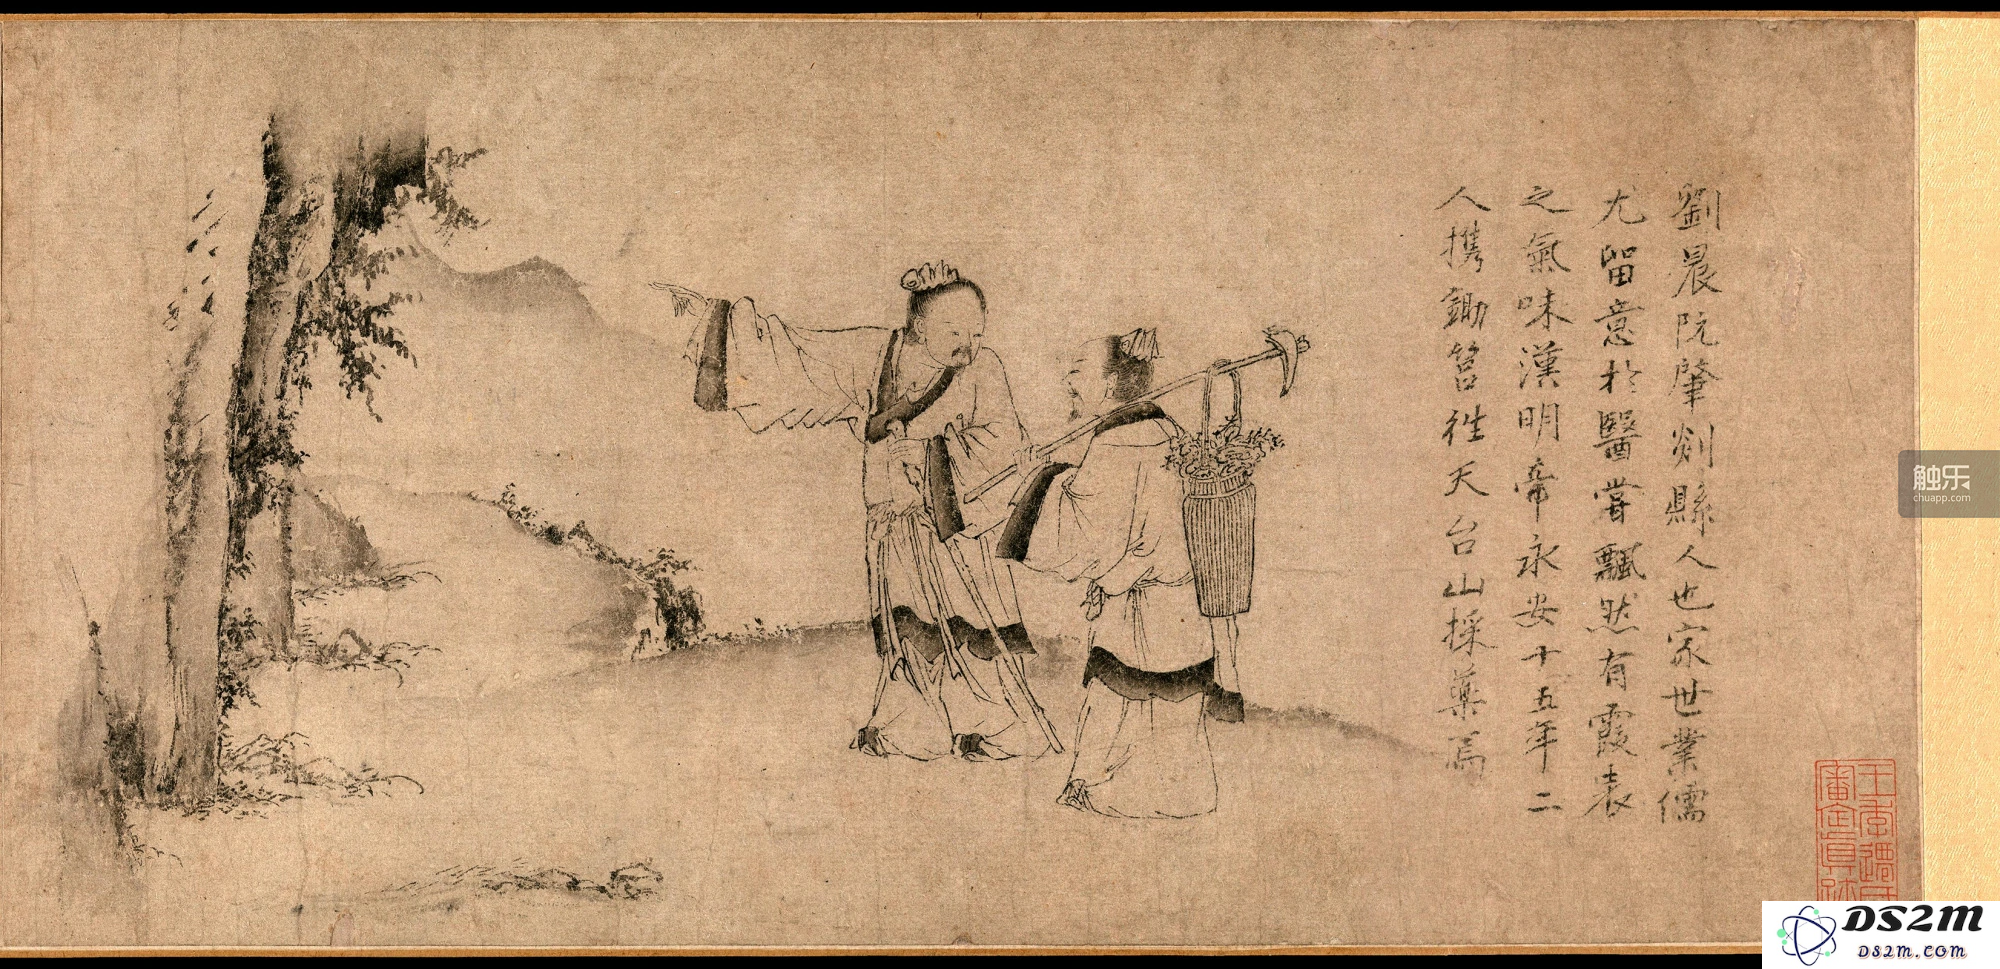 劉晨阮肇剡縣人也家世業儒
尤留意於醫嘗飄然有霞表
之氣味漢明帝永安十五年二
人携鋤筥徃天台山採藥焉
王季遷氏
審定真跡
触乐
chuapp.com
DS2M
DS2m.com